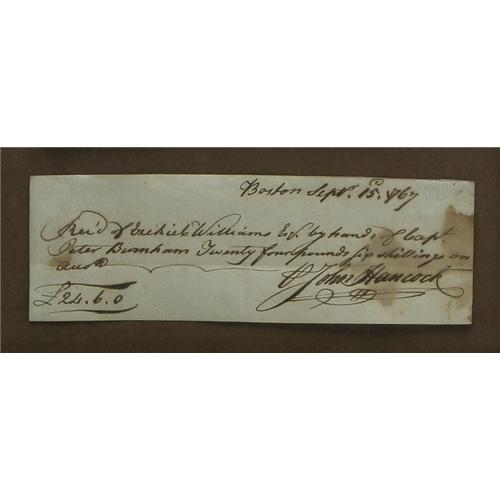 Boston Sept. 15. 1767
Rec'd of Ezekiel Williams Esq. by hands of Capt.
Peter Burnham Twenty four pounds six shillings on
£24.6.0
John Hancock